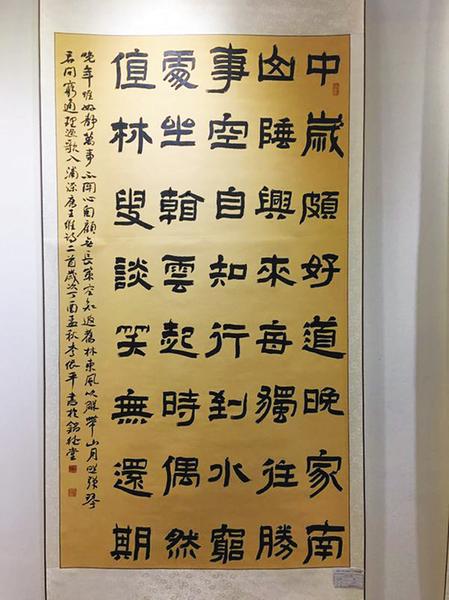 中歲頗好道晚家南
山陲興來每獨往勝
事空自知行到水窮
處坐看雲起時偶然
值林叟談笑無還期
晚年惟好靜萬事不關心自顧無長策空知返舊林東風吹解帶山月照彈琴
君問窮通理漁歌入浦深唐王維詩二首歲次丁酉孟秋李平書於堂